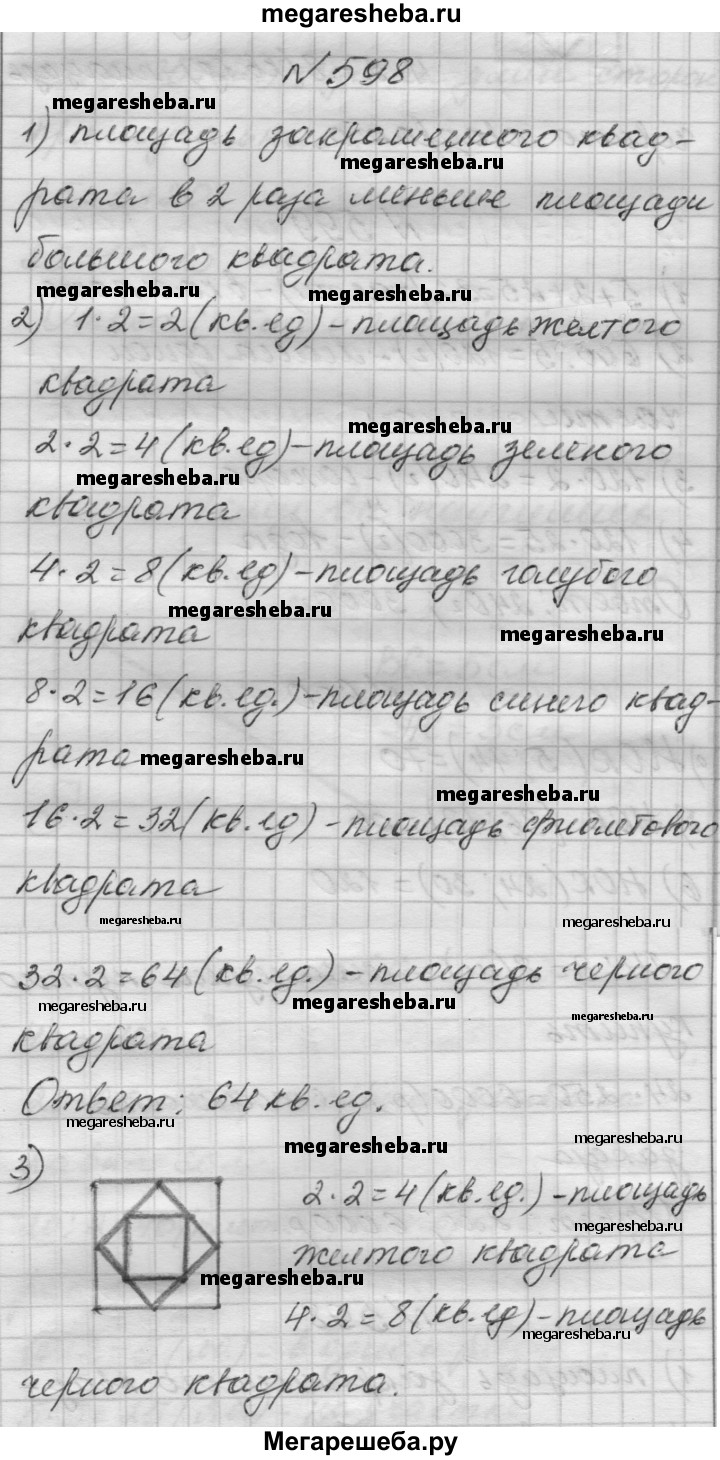 megaresheba.ru
№ 598
megaresheba.ru
1) площадь закрашенного квад-
megaresheba.ru
рата в 2 раза меньше площади
большого квадрата.
megaresheba.ru megaresheba.ru
2) 1·2=2(кв.ед)-площадь желтого
квадрата
megaresheba.ru
2·2=4(кв.ед)-площадь зеленого
megaresheba.ru
квадрата
4·2=8(кв.ед)-площадь голубого
megaresheba.ru
квадрата megaresheba.ru
8·2=16(кв.ед.)-площадь синего квад-
рата megaresheba.ru
megaresheba.ru
16·2=32(кв.ед)-площадь фиолетового
квадрата
megaresheba.ru megaresheba.ru
32·2=64(кв.ед.)-площадь черного
megaresheba.ru megaresheba.ru megaresheba.ru
квадрата
Ответ: 64 кв.ед.
megaresheba.ru megaresheba.ru megaresheba.ru
3) 2·2=4(кв.ед.)-площадь
megaresheba.ru
желтого квадрата
megaresheba.ru
4·2=8(кв.ед)-площадь
megaresheba.ru
черного квадрата.
Мегарешеба.ру